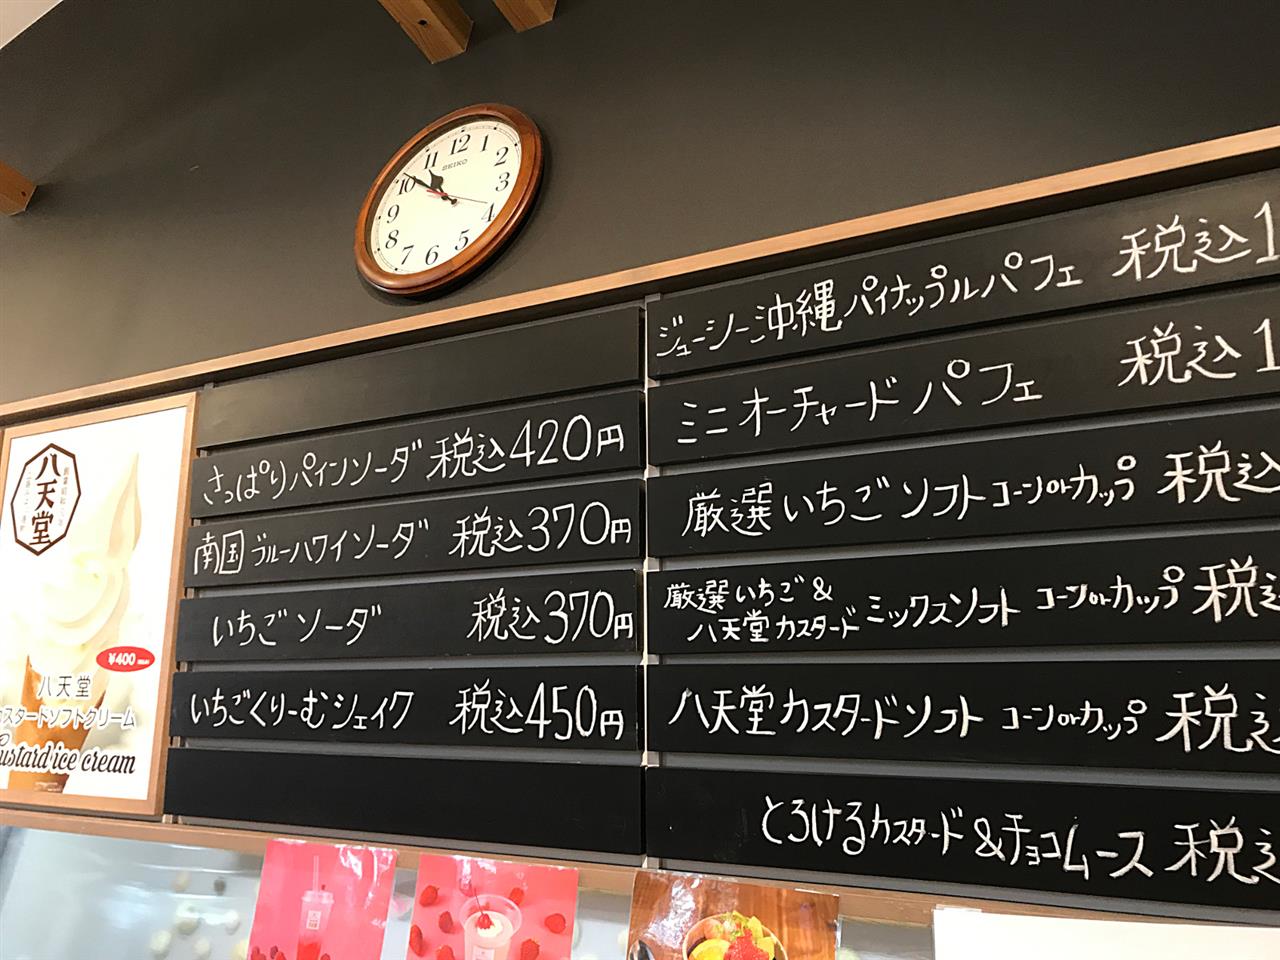 12
1
2
3
4
5
6
7
8
9
10
11
SEIKO
八天堂
¥400
八天堂
カスタードソフトクリーム
Custard ice cream
さっぱりパインソーダ 税込420円
南国ブルーハワイソーダ 税込370円
いちごソーダ 税込370円
いちごくりーむシェイク 税込450円
ジューシー沖縄パイナップルパフェ 税込1
ミニオーチャードパフェ 税込1
厳選いちごソフト コーンorカップ 税込
厳選いちご&
八天堂カスタード ミックスソフト コーンorカップ 税込
八天堂カスタードソフト コーンorカップ 税込
とろけるカスタード&チョコムース 税込